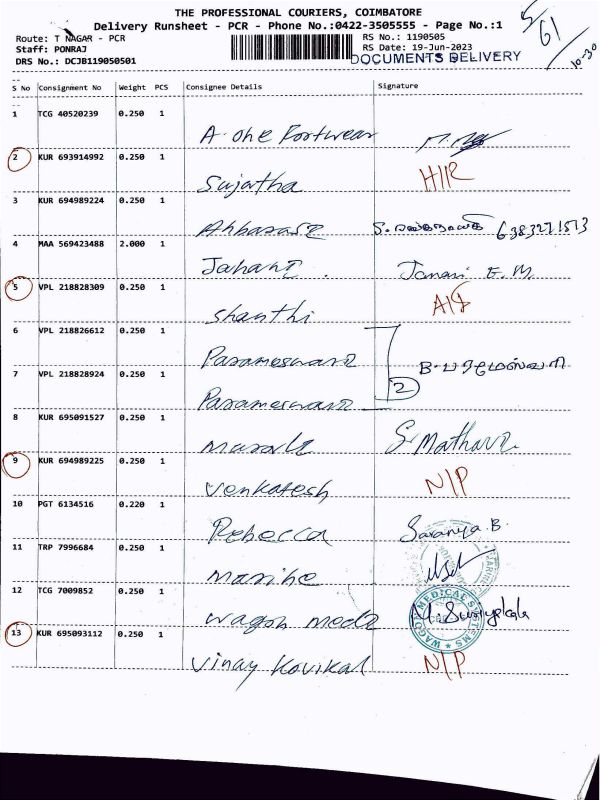 THE PROFESSIONAL COURIERS, COIMBATORE
Delivery Runsheet - PCR - Phone No.:0422-3505555 - Page No.:1
Route: T NAGAR - PCR RS No.: 1190505
Staff: PONRAJ RS Date: 19-Jun-2023
DRS No.: DCJB119050501 DOCUMENTS DELIVERY
5/61/10-30
S No Consignment No Weight PCS Consignee Details Signature
1 TCG 40520239 0.250 1
A. one Footwear
2 KUR 693914992 0.250 1
Sujatha
3 KUR 694989224 0.250 1
6383271513
4 MAA 569423488 2.000 1
Janani E. M.
5 VPL 218828309 0.250 1
Shanthi
6 VPL 218826612 0.250 1
Parameswari
2
B. பரமேஸ்வரி
7 VPL 218828924 0.250 1
Parameswari
8 KUR 695091527 0.250 1
S. Mathavi
9 KUR 694989225 0.250 1
Venkatesh N/P
10 PGT 6134516 0.220 1
Rebecca Saranya.B.
11 TRP 7996684 0.250 1
12 TCG 7009852 0.250 1
MEDICAL SYSTEMS
13 KUR 695093112 0.250 1
Vinay N/P